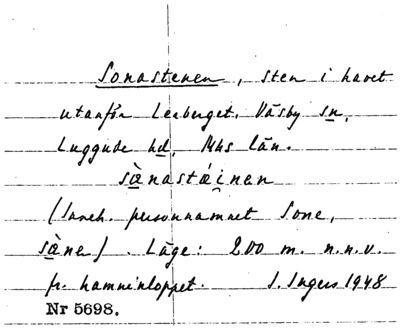 Sonastenen, sten i havet
utanför Lerberget, Väsby sn,
Luggude hd, Mhs län.
sànastáinen
(Inneh. personnamnet Sone,
sàne). Läge: 200 m. n.n.v.
fr. hamninloppet. I. Ingers 1948
Nr 5698.